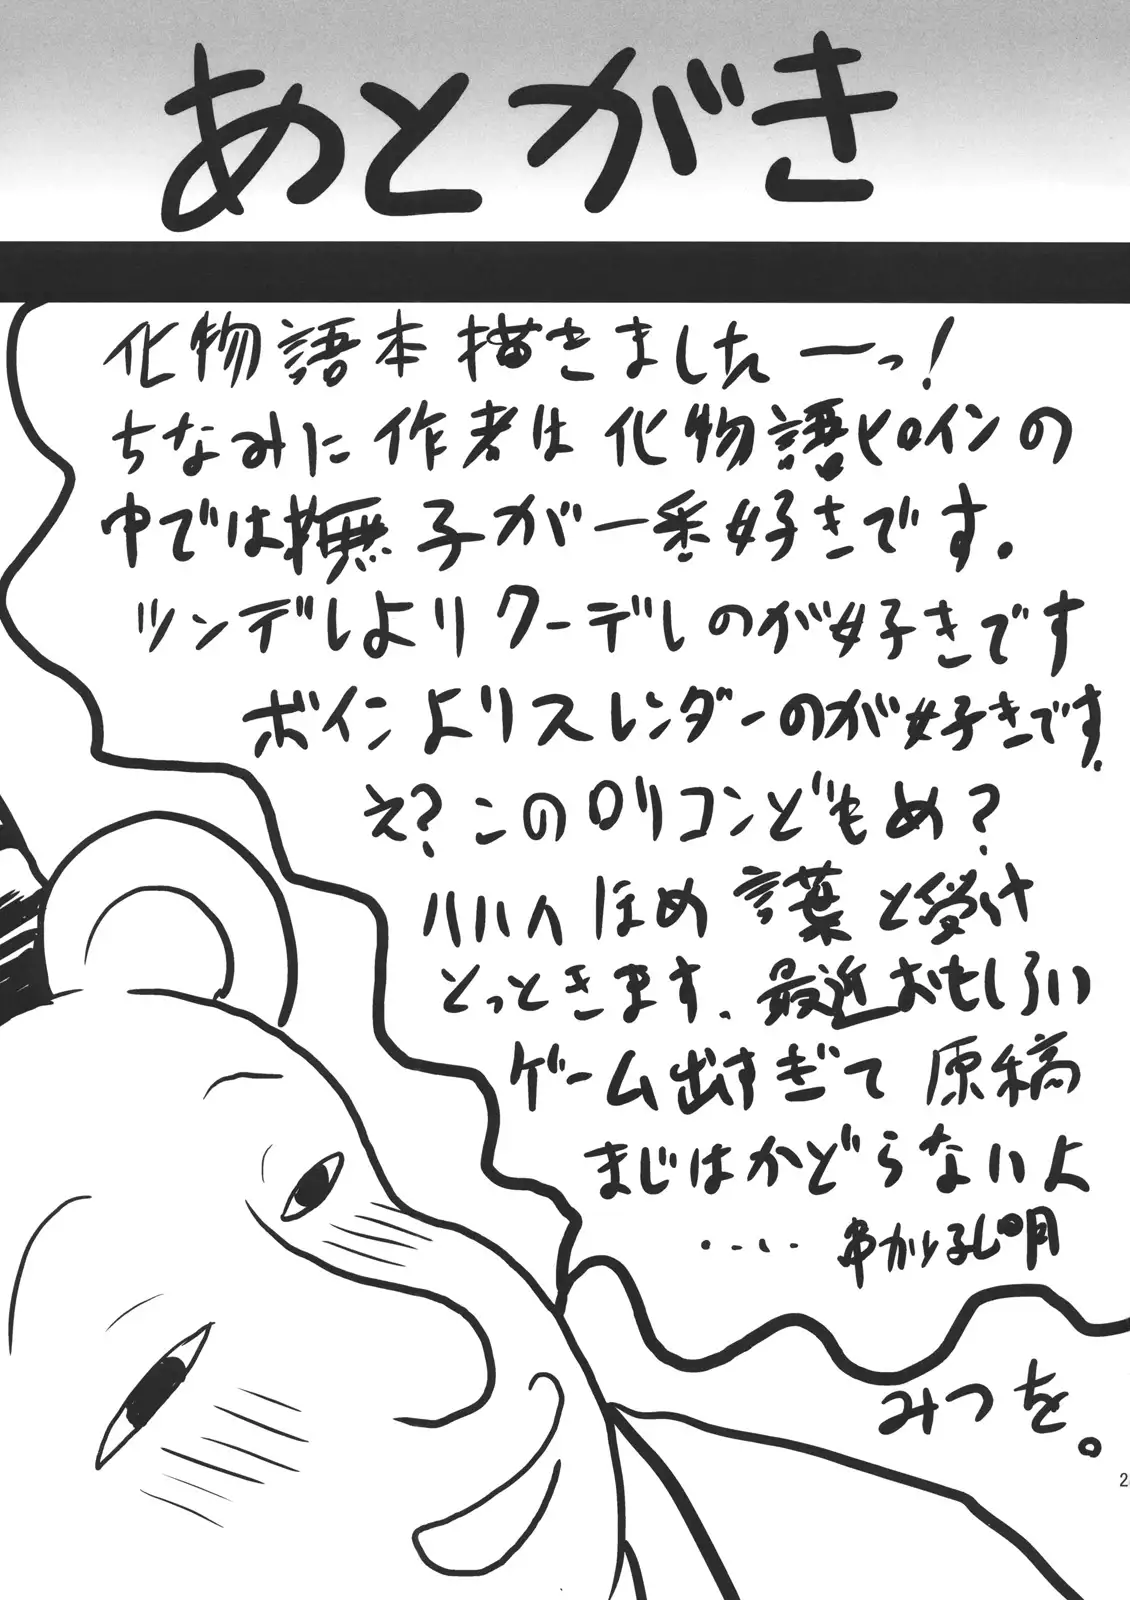 あとがき
化物語本描きましたーっ!
ちなみに作者は化物語ヒロインの
中では撫子が一番好きです。
ツンデレよりクーデレのが好きです
ボインよりスレンダーのが好きです。
え?このロリコンどもめ?
ハハハほめ言葉と受け
とっときます。最近おもしろい
ゲーム出すぎて原稿
まじはかどらないよ
・・・・・串かつ孔明
みつを。